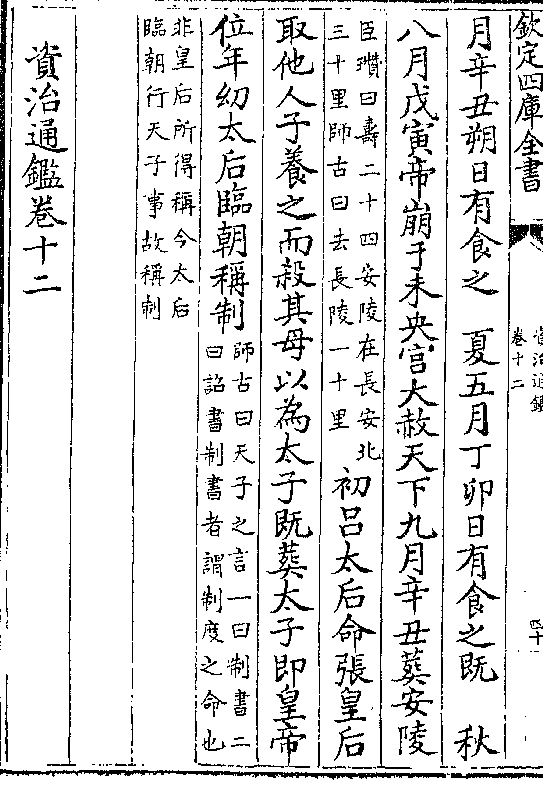 欽定四庫全書
資治通鑑
卷十二
四十
月辛丑朔日有食之　夏五月丁卯日有食之既　秋
八月戊寅帝崩于未央宫大赦天下九月辛丑葬安陵
臣瓚曰壽二十四安陵在長安北
三十里師古曰去長陵一十里
初吕太后命張皇后
取他人子養之而殺其母以為太子既葬太子即皇帝
位年幼太后臨朝稱制
師古曰天子之言一曰制書二
曰詔書制書者謂制度之命也
非皇后所得稱今太后
臨朝行天子事故稱制
資治通鑑卷十二